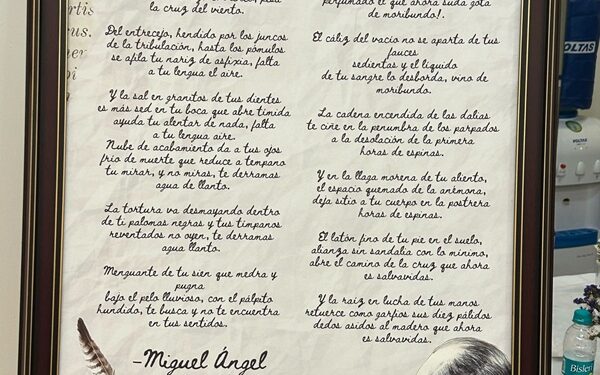 rtis
us.
ner
pi
la cruz del viento.
Del entrecejo, hendido por los juncos
de la tribulación, hasta los pómulos
se afila tu nariz de asfixia, falta
a tu lengua el aire.
Y la sal en granitos de tus dientes
es más sed en tu boca que abre tímida
ayuda tu alentar de nada, falta
a tu lengua aire.
Nube de acabamiento da a tus ojos
frío de muerte que reduce a témpano
tu mirar, y no miras, te derramas
agua de llanto.
La tortura va desmayando dentro
de ti palomas negras y tus tímpanos
reventados no oyen, te derramas
agua llanto.
Menguante de tu sien que medra y
pugna
bajo el pelo lluvioso, con el pálpito
hundido, te busca y no te encuentra
en tus sentidos.
-Miguel Ángel
perfumado el que ahora suda gota
de moribundo!.
El cáliz del vacío no se aparta de tus
fauces
sedientas y el líquido
de tu sangre lo desborda, vino de
moribundo.
La cadena encendida de las dalias
te ciñe en la penumbra de los párpados
a la desolación de la primera
horas de espinas.
Y en la llaga morena de tu aliento,
el espacio quemado de la anémona,
deja sitio a tu cuerpo en la postrera
horas de espinas.
El latón fino de tu pie en el suelo,
alianza sin sandalia con lo mínimo,
abre el camino de la cruz que ahora
es salvavidas.
Y la raíz en lucha de tus manos
retuerce como garfios sus diez pálidos
dedos asidos al madero que ahora
es salvavidas.
VOLTAS
VOLTAS
Bisleri